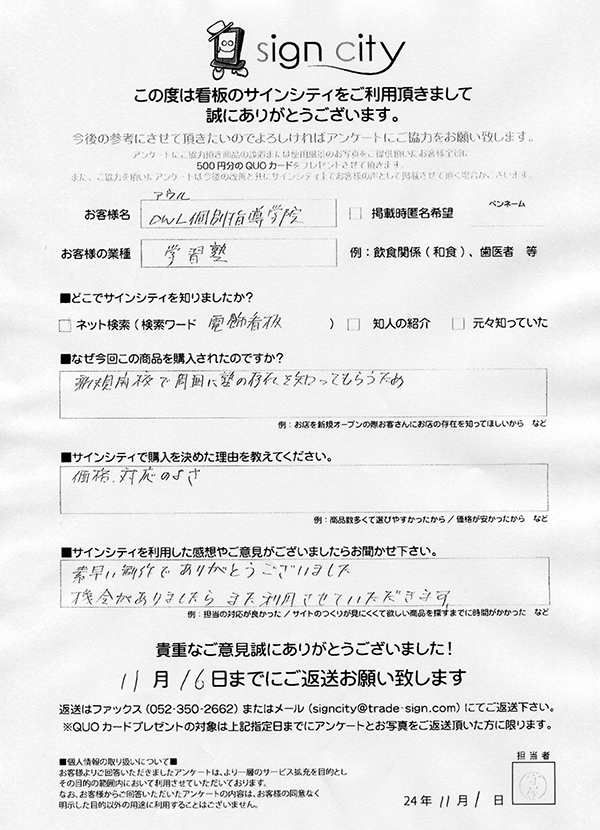 sign city
この度は看板のサインシティをご利用頂きまして
誠にありがとうございます。
今後の参考にさせて頂きたいのでよろしければアンケートにご協力をお願い致します。
アンケートにご協力頂き商品の設置または使用風景のお写真をご提供頂いたお客様全員に
500円分のQUOカードをプレゼントさせて頂きます。
また、ご協力を頂いたアンケートは今後の改善と共にサインシティ上でお客様の声として掲載させて頂く場合がございます。
アウル
お客様名 OWL個別指導学院 □ 掲載時匿名希望 ペンネーム
お客様の業種 学習塾 例：飲食関係（和食）、歯医者 等
■どこでサインシティを知りましたか？
□ ネット検索（検索ワード 電飾看板 ） □ 知人の紹介 □ 元々知っていた
■なぜ今回この商品を購入されたのですか？
新規開校で周囲に塾の存在を知ってもらうため
例：お店を新規オープンの際お客さんにお店の存在を知ってほしいから など
■サインシティで購入を決めた理由を教えてください。
価格、対応のよさ
例：商品数多くて選びやすかったから / 価格が安かったから など
■サインシティを利用した感想やご意見がございましたらお聞かせ下さい。
素早い制作でありがとうございました
機会がありましたらまた利用させていただきます
例：担当の対応が良かった / サイトのつくりが見にくくて欲しい商品を探すまでに時間がかかった など
貴重なご意見誠にありがとうございました！
11月16日までにご返送お願い致します
返送はファックス（052-350-2662）またはメール（signcity@trade-sign.com）にてご返送下さい。
※QUOカードプレゼントの対象は上記指定日までにアンケートとお写真をご返送頂いた方に限ります。
■個人情報の取り扱いについて■
お客様よりご回答いただきましたアンケートは、より一層のサービス拡充を目的とし
その目的の範囲内において利用させていただいております。
なお、お客様からご回答いただいたアンケートの内容は、お客様の同意なく
明示した目的以外の用途に利用することはございません。
担当者
24年11月1日